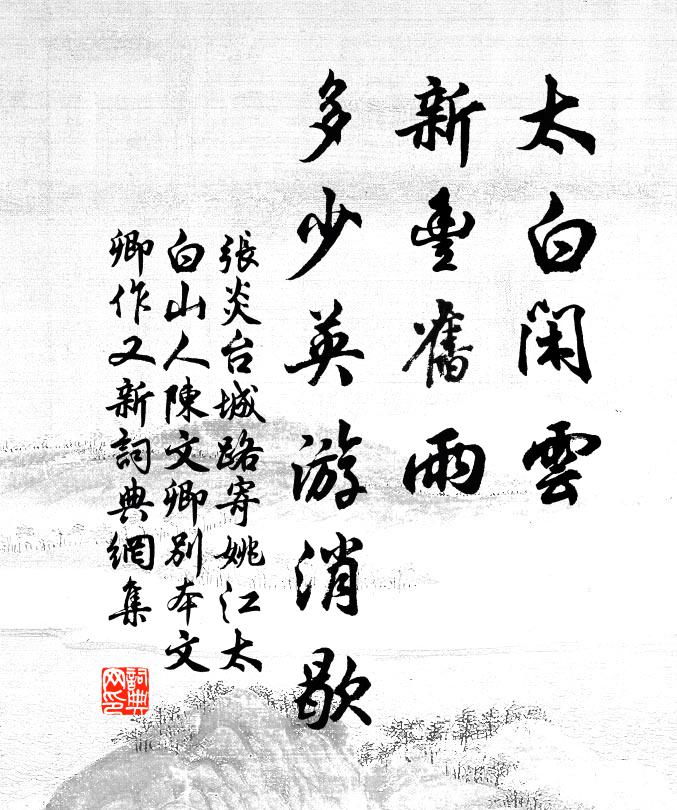 太白闲雲
新豐舊雨
多少英游消歇
張炎台城路寄姚江太
白山人陳文卿别本文
卿作又新詞典網集
詞典网印